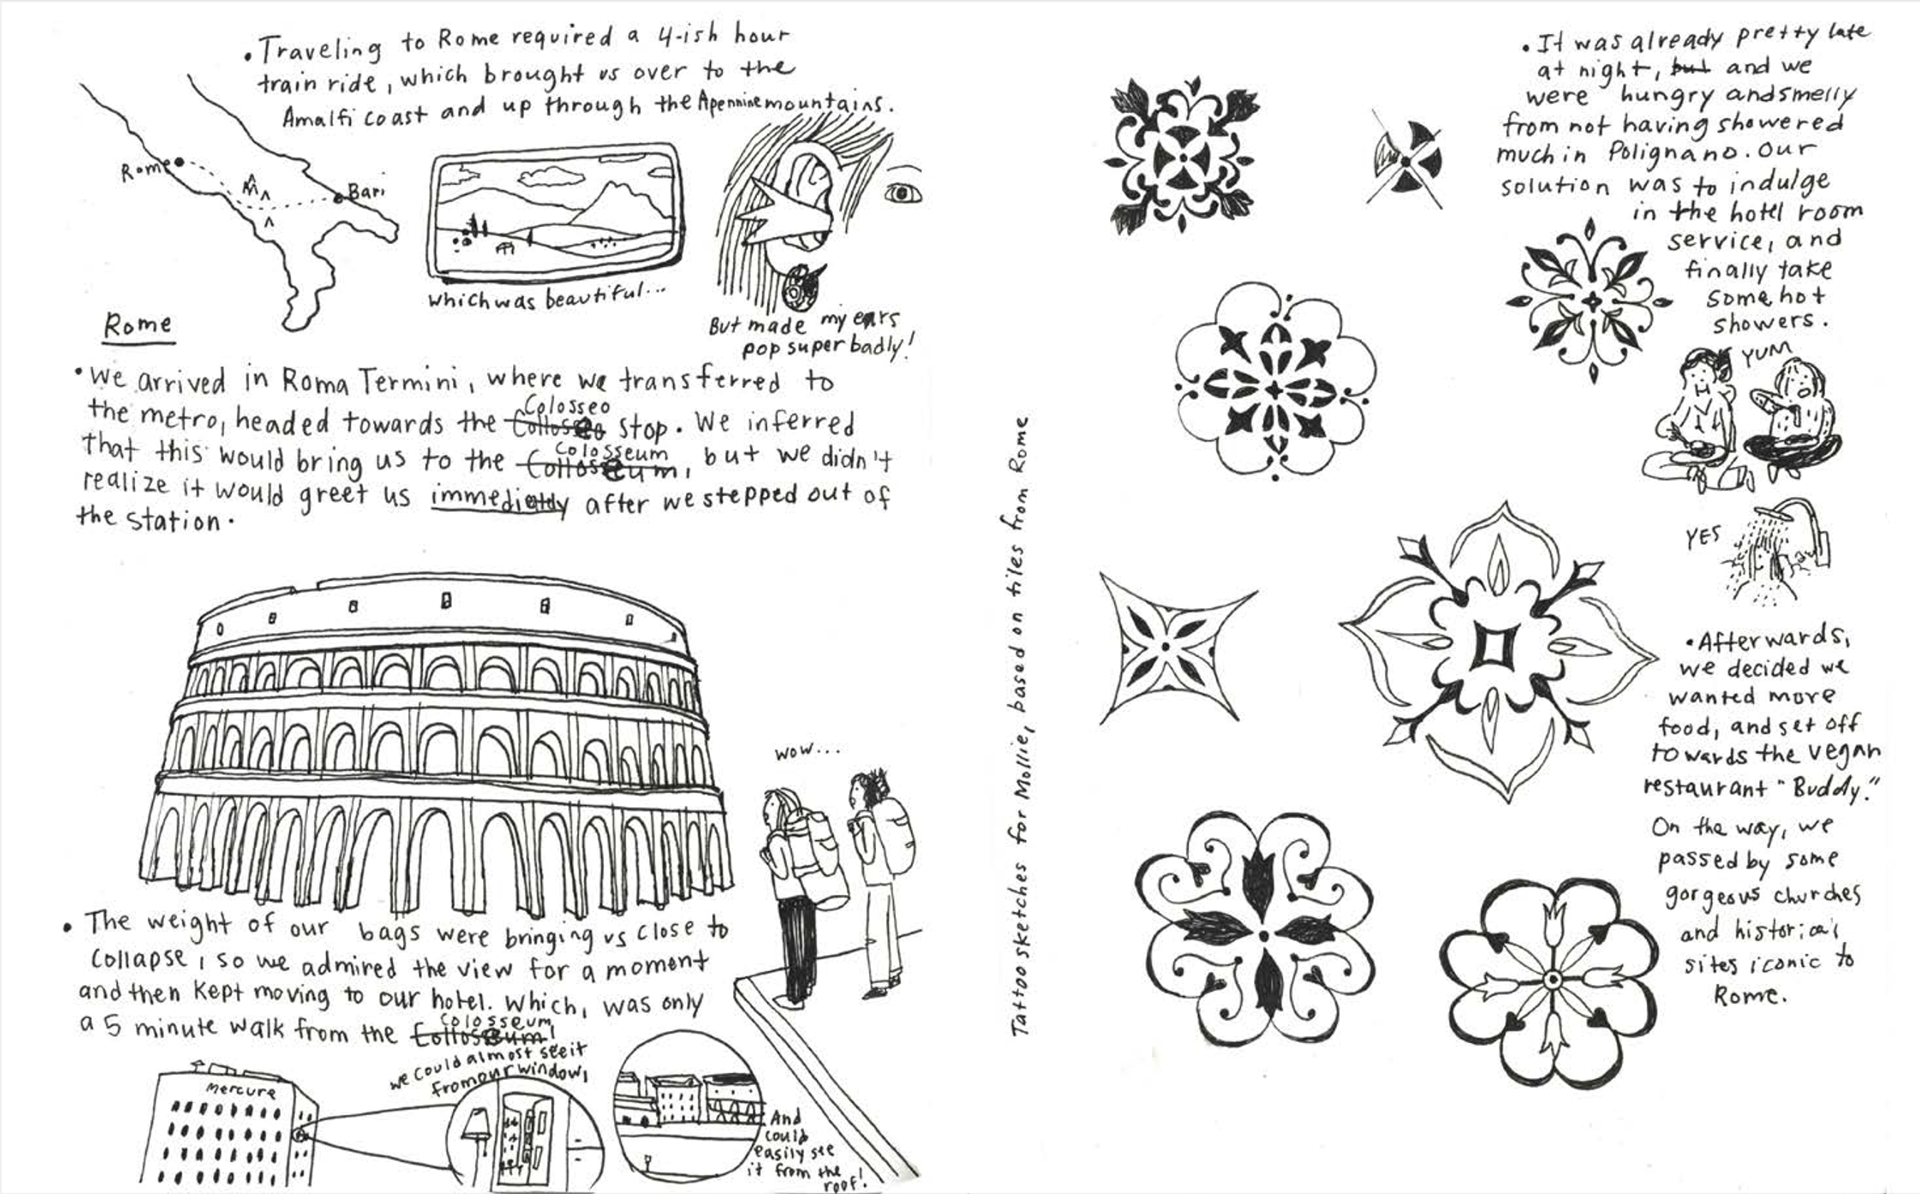 • Traveling to Rome required a 4-ish hour
train ride, which brought us over to the
Amalfi coast and up through the Apennine mountains.
Rome
Bari
which was beautiful...
But made my ears
pop super badly!
Rome
• We arrived in Roma Termini, where we transferred to
the metro, headed towards the Colosseo stop. We inferred
that this would bring us to the Colosseum, but we didn't
realize it would greet us immediatly after we stepped out of
the station.
wow...
• The weight of our bags were bringing us close to
collapse, so we admired the view for a moment
and then kept moving to our hotel. Which, was only
a 5 minute walk from the Colosseum!
Mercure
we could almost see it
from our window,
And
could
easily see
it from the
roof!
Tattoo sketches for Mollie, based on tiles from Rome
• It was already pretty late
at night, but and we
were hungry and smelly
from not having showered
much in Polignano. Our
solution was to indulge
in the hotel room
service, and
finally take
some hot
showers.
YUM
YES
• Afterwards,
we decided we
wanted more
food, and set off
towards the vegan
restaurant "Buddy."
On the way, we
passed by some
gorgeous churches
and historical
sites iconic to
Rome.